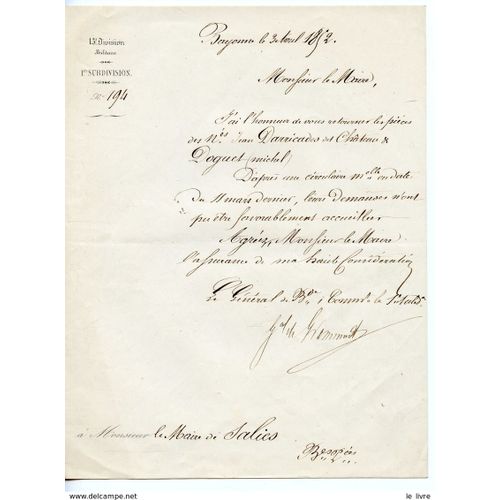 15e Division
Militaire
1re SUBDIVISION.
No 194
Bayonne le 3 Avril 1852.
Monsieur le Maire,
J'ai l'honneur de vous retourner les pièces
des Nés Jean Darricades dit Château &
Doguet (michel)
D'après une circulaire mlle en date
du 11 mars dernier, leurs demandes n'ont
pu être favorablement accueillies
Agréez, Monsieur le Maire
l'assurance de ma haute Considération
Le Général de Bde, Commdt la Subdon
Gal de
à Monsieur le Maire de Salies
Bses Pées
www.delcampe.net
le livre